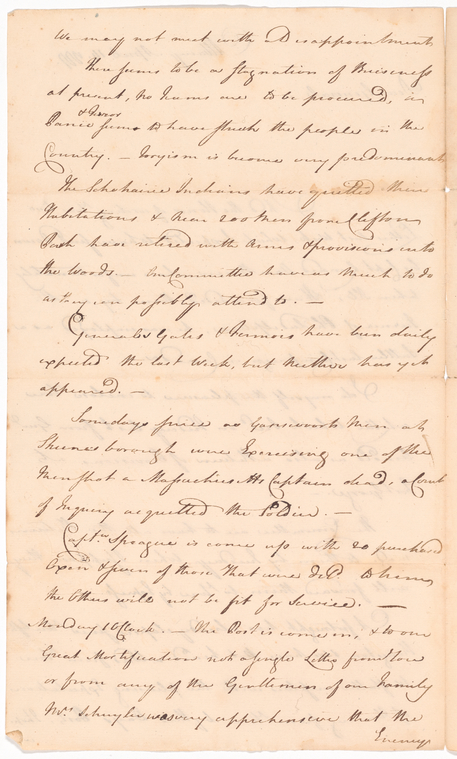 We may not meet with a Disappointment
There seems to be a Stagnation of Buisiness
at present, no Teams are to be procured, a
& Terror
Panic seems to have struck the people in the
Country. — Toryism is become very predominant
The Schoharie Indians have quitted their
Habitations & near 200 Men from Clifton
Park have retired with Arms & provisions into
the Woods. — Our Committee have as Much to do
as they can possibly attend to. —
Generals Gates & Fermois have been daily
expected the last Week, but Neither has yet
appeared. —
Some days since as Gansevoorts Men at
Skenesborough were Exercising one of the
Men shot a Massachusetts Captain dead, a Court
of Inquiry acquitted the Soldier. —
Capt. Sprague is come up with 20 purchased
Oxen & seven of those that were to him,
the Others will not be fit for Service. —
Monday 1 OClock. — The Post is come in, & to our
Great Mortification not a Single Letter from You
or from any of the Gentlemen of our Family
Mrs. Schuyler was very apprehensive that the
Enemy